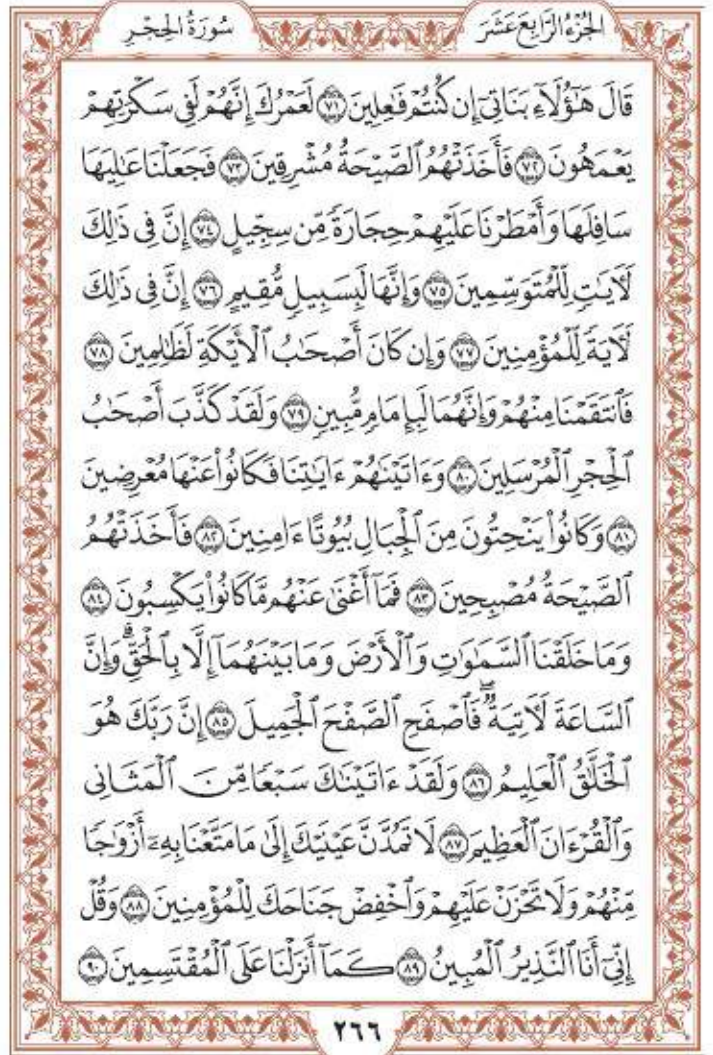 الجُزْءُ الرَّابِعَ عَشَرَ سُورَةُ الحِجْرِ
قَالَ هَٰٓؤُلَآءِ بَنَاتِيٓ إِن كُنتُمۡ فَٰعِلِينَ ۝٧١ لَعَمۡرُكَ إِنَّهُمۡ لَفِي سَكۡرَتِهِمۡ
يَعۡمَهُونَ ۝٧٢ فَأَخَذَتۡهُمُ ٱلصَّيۡحَةُ مُشۡرِقِينَ ۝٧٣ فَجَعَلۡنَا عَٰلِيَهَا
سَافِلَهَا وَأَمۡطَرۡنَا عَلَيۡهِمۡ حِجَارَةٗ مِّن سِجِّيلٍ ۝٧٤ إِنَّ فِي ذَٰلِكَ
لَأٓيَٰتٖ لِّلۡمُتَوَسِّمِينَ ۝٧٥ وَإِنَّهَا لَبِسَبِيلٖ مُّقِيمٍ ۝٧٦ إِنَّ فِي ذَٰلِكَ
لَأٓيَةٗ لِّلۡمُؤۡمِنِينَ ۝٧٧ وَإِن كَانَ أَصۡحَٰبُ ٱلۡأَيۡكَةِ لَظَٰلِمِينَ ۝٧٨
فَٱنتَقَمۡنَا مِنۡهُمۡ وَإِنَّهُمَا لَبِإِمَامٖ مُّبِينٖ ۝٧٩ وَلَقَدۡ كَذَّبَ أَصۡحَٰبُ
ٱلۡحِجۡرِ ٱلۡمُرۡسَلِينَ ۝٨٠ وَءَاتَيۡنَٰهُمۡ ءَايَٰتِنَا فَكَانُواْ عَنۡهَا مُعۡرِضِينَ
۝٨١ وَكَانُواْ يَنۡحِتُونَ مِنَ ٱلۡجِبَالِ بُيُوتًا ءَامِنِينَ ۝٨٢ فَأَخَذَتۡهُمُ
ٱلصَّيۡحَةُ مُصۡبِحِينَ ۝٨٣ فَمَآ أَغۡنَىٰ عَنۡهُم مَّا كَانُواْ يَكۡسِبُونَ ۝٨٤
وَمَا خَلَقۡنَا ٱلسَّمَٰوَٰتِ وَٱلۡأَرۡضَ وَمَا بَيۡنَهُمَآ إِلَّا بِٱلۡحَقِّۗ وَإِنَّ
ٱلسَّاعَةَ لَأٓتِيَةٞۖ فَٱصۡفَحِ ٱلصَّفۡحَ ٱلۡجَمِيلَ ۝٨٥ إِنَّ رَبَّكَ هُوَ
ٱلۡخَلَّٰقُ ٱلۡعَلِيمُ ۝٨٦ وَلَقَدۡ ءَاتَيۡنَٰكَ سَبۡعٗا مِّنَ ٱلۡمَثَانِي
وَٱلۡقُرۡءَانَ ٱلۡعَظِيمَ ۝٨٧ لَا تَمُدَّنَّ عَيۡنَيۡكَ إِلَىٰ مَا مَتَّعۡنَا بِهِۦٓ أَزۡوَٰجٗا
مِّنۡهُمۡ وَلَا تَحۡزَنۡ عَلَيۡهِمۡ وَٱخۡفِضۡ جَنَاحَكَ لِلۡمُؤۡمِنِينَ ۝٨٨ وَقُلۡ
إِنِّيٓ أَنَا ٱلنَّذِيرُ ٱلۡمُبِينُ ۝٨٩ كَمَآ أَنزَلۡنَا عَلَى ٱلۡمُقۡتَسِمِينَ ۝٩٠
٢٦٦